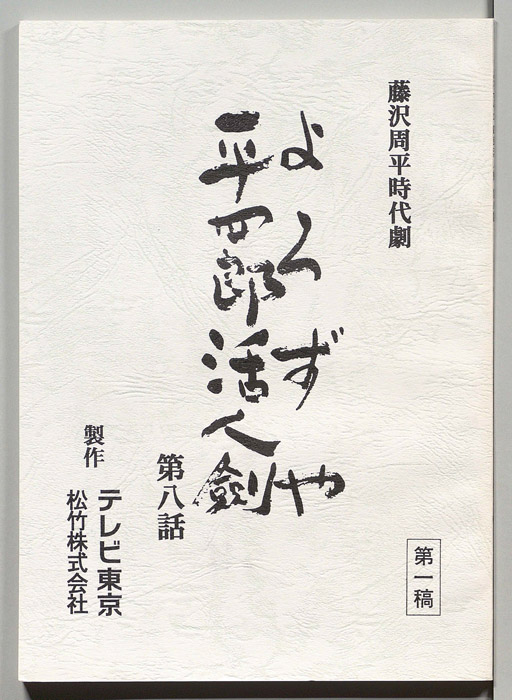 藤沢周平時代劇
よろずや
平四郎活人剣
第八話
第一稿
製作
テレビ東京
松竹株式会社